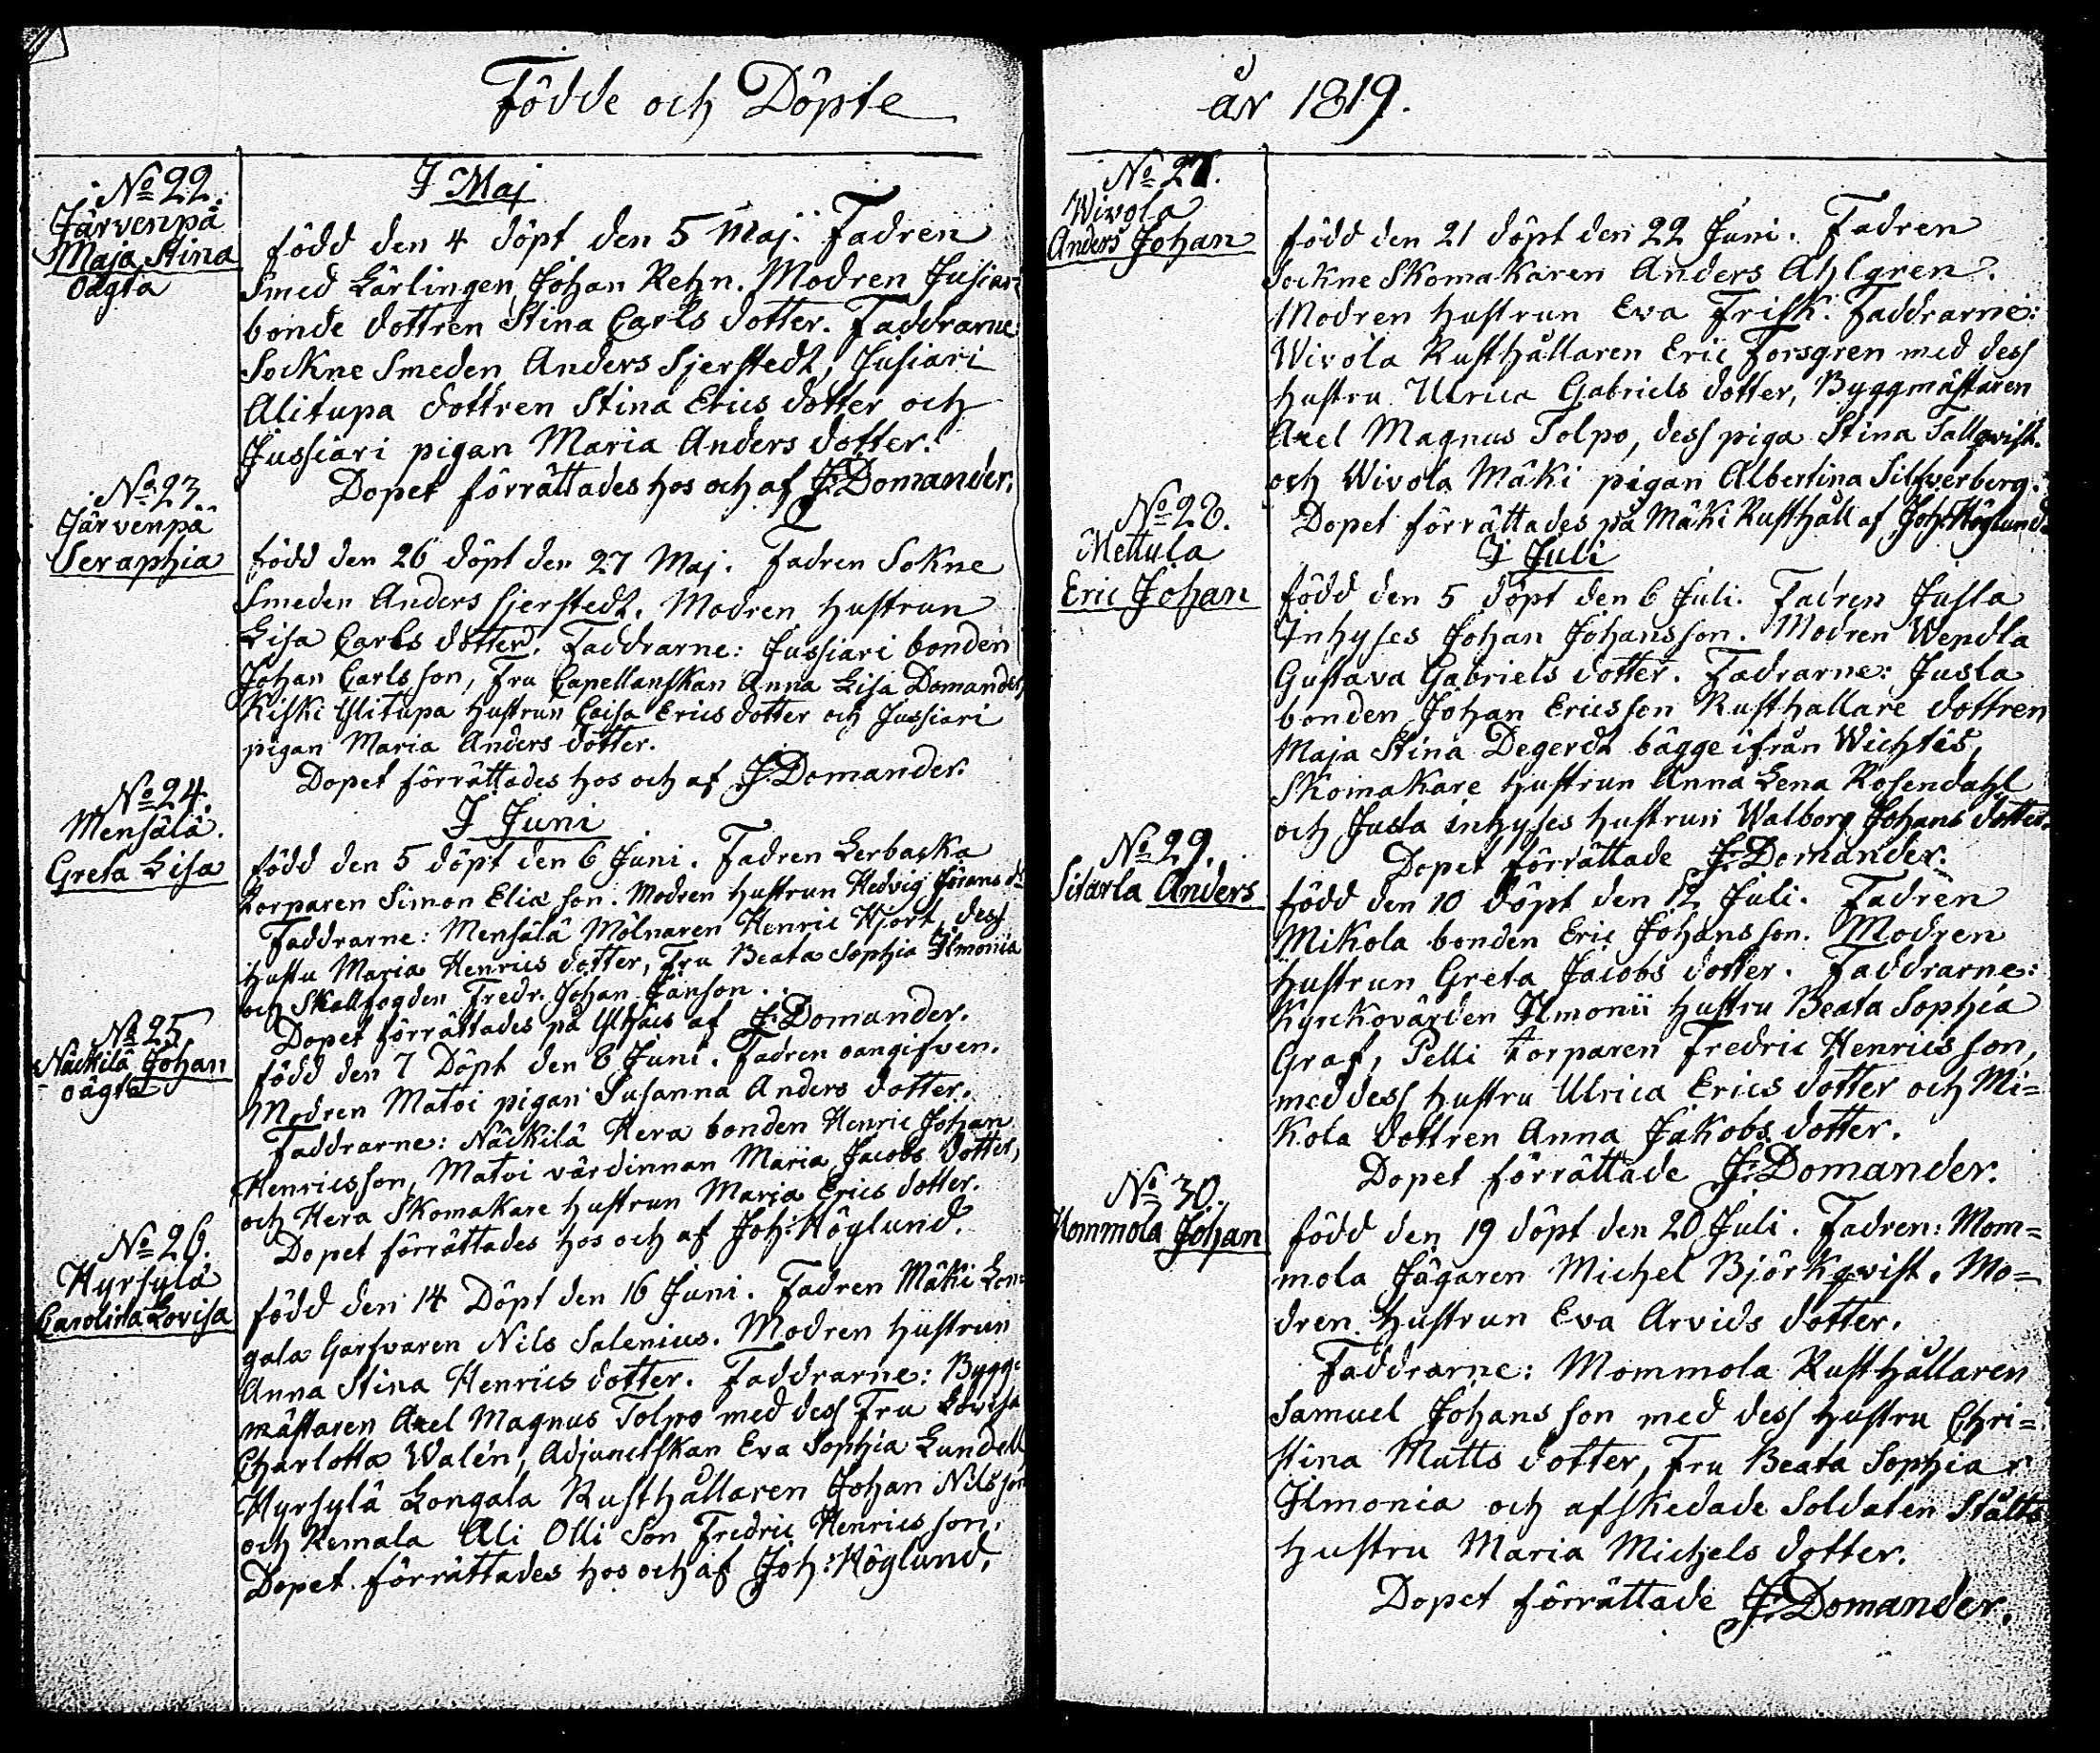 Födde och Döpte
No 22.
Järvenpä
Maja Stina
oägta
I Maj
född den 4 döpt den 5 Maj. Fadren
Smed Lärlingen Johan Rehn. Modren Jusiari
bonde dottren Stina Carls dotter. Faddrarne:
Sockne Smeden Anders Sjerstedt, Jusiari
Alitupa dottren Stina Erics dotter och
Jussiari pigan Maria Anders dotter.
Dopet förrättades hos och af J. Domander.
No 23.
Järvenpä
Seraphia
född den 26 döpt den 27 Maj. Fadren Sokne
Smeden Anders Sjerstedt. Modren hustrun
Lisa Carls dotter. Faddrarne: Jussiari bonden
Johan Carlsson, Fru Capellanskan Anna Lisa Domander,
Kiski Ylitupa hustrun Caisa Erics dotter och Jussiari
pigan Maria Anders dotter.
Dopet förrättades hos och af J. Domander.
No 24.
Mensälä.
Greta Lisa
I Juni
född den 5 döpt den 6 Juni. Fadren Lerbacka
torparen Simon Elia son. Modren hustrun Hedvig Jörans dr
Faddrarne: Mensälä Mölnaren Henric Hjort, dess
hustu Maria Henrics dotter, Fru Beata Sophia Ilmonia
och Skallfogden Fredr. Johan Janson.
Dopet förrättades på Olhais af J. Domander.
No 25
Näckilä Johan
oägta
född den 7 Döpt den 8 Juni. Fadren oangifven.
Modren Matoi pigan Susanna Anders dotter.
Faddrarne: Näckilä Hera bonden Henric Johan
Henricsson, Matoi värdinnan Maria Jacobs dotter,
och Hera Skomakare hustrun Maria Erics dotter.
Dopet förrättades hos och af Joh: Höglund.
No 26.
Hyrsylä
Carolina Lovisa
född den 14 Döpt den 16 Juni. Fadren Mäki Lon=
gala Garfvaren Nils Salenius. Modren hustrun
Anna Stina Henrics dotter. Faddrarne: Bygg=
mästaren Axel Magnus Tolpo med dess Fru Lovisa
Charlotta Walén, Adjunctskan Eva Sophia Lundell
Hyrsylä Longala Rusthållaren Johan Nilsson
och Remala Ali Olli Son Fredric Henricsson.
Dopet förrättades hos och af Joh: Höglund.
år 1819.
No 27.
Wivola
Anders Johan
född den 21 döpt den 22 Juni. Fadren
Sockne Skomakaren Anders Ahlgren.
Modren hustrun Eva Frisk. Faddrarne:
Wivola Rusthållaren Eric Forsgren med dess
hustru Ulrica Gabriels dotter, Byggmästaren
Axel Magnus Tolpo, dess piga Stina Tallqvist.
och Wivola Mäki pigan Albertina Silfverberg.
Dopet förrättades på Mäki Rusthåll af Joh: Höglund.
No 28.
Mettula
Eric Johan
I Juli
född den 5 döpt den 6 Juli. Fadren Jusla
Inhyses Johan Johansson. Modren Wendla
Gustava Gabriels dotter. Fadrarne: Jusla
bonden Johan Ericsson Rusthallare dottren
Maja Stina Degerdt bägge ifrån Wichtis,
Skomakare hustrun Anna Lena Rosendahl
och Jusla inhyses hustrun Walborg Johans dotter.
Dopet förrättade J. Domander.
No 29.
Sitarla Anders
född den 10 döpt den 12 Juli. Fadren
Mikola bonden Eric Johansson. Modren
hustrun Greta Jacobs dotter. Faddrarne:
Kyrckovärden Ilmonii hustru Beata Sophia
Graf, Pelli torparen Fredric Henricsson,
med dess hustru Ulrica Erics dotter och Mi=
kola dottren Anna Jakobs dotter.
Dopet förrättade J. Domander.
No 30.
Mommola Johan
född den 19 döpt den 20 Juli. Fadren: Mom=
mola Jägaren Michel Björkqvist. Mo=
dren hustrun Eva Arvids dotter.
Faddrarne: Mommola Rusthållaren
Samuel Johansson med dess hustru Chri=
stina Matts dotter, Fru Beata Sophia
Ilmonia och afskedade Soldaten Stålts
hustru Maria Michels dotter.
Dopet förrättade J. Domander.